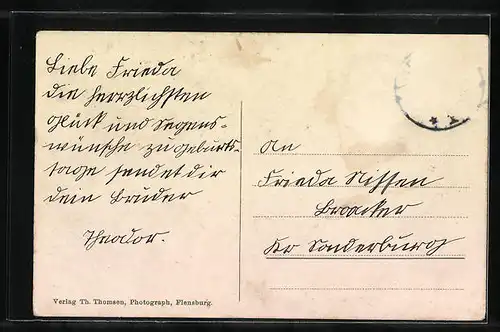 Liebe Frieda
die herrzlichsten
Glück und Segens-
wünsche zu Geburts-
tage sendet dir
dein Bruder
Theodor.
An
Frieda Nissen
Broacker
Kr Sonderburg
Verlag Th. Thomsen, Photograph, Flensburg.